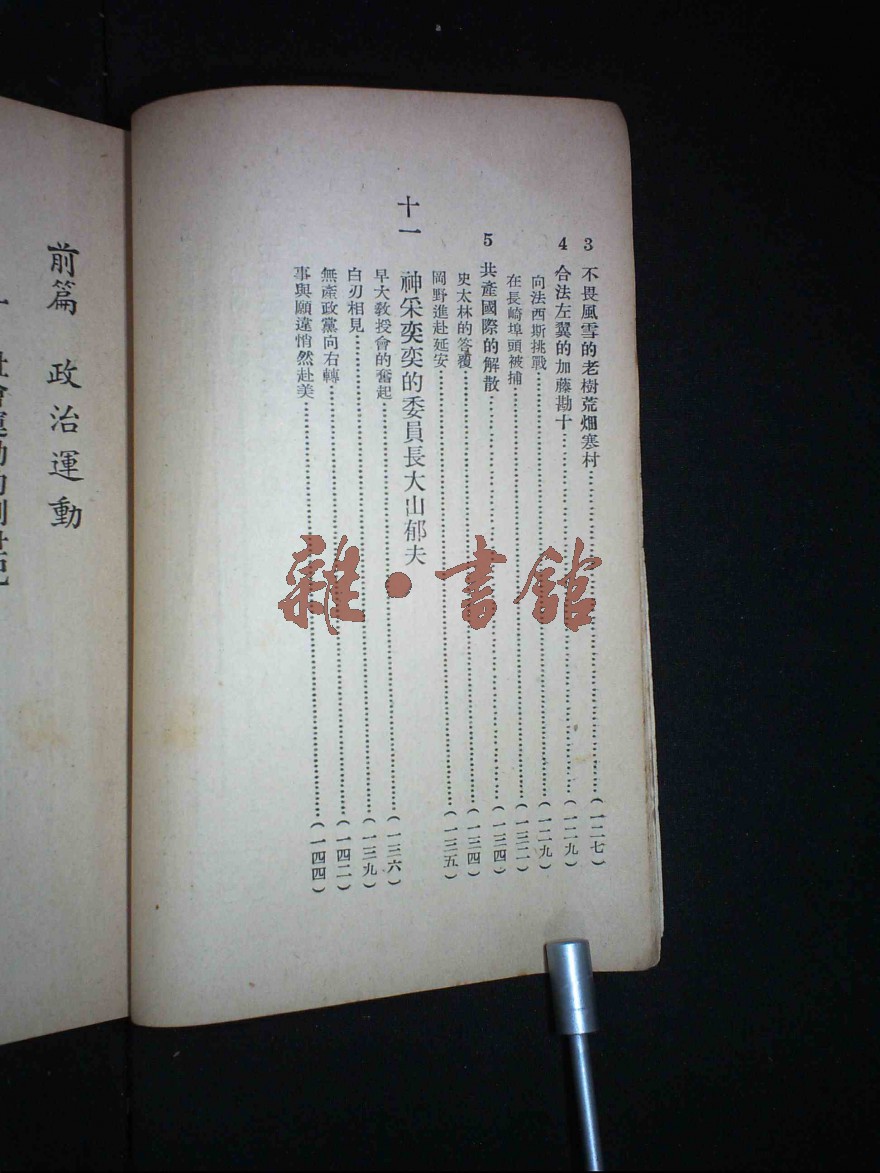 3 不畏風雪的老樹荒畑寒村……(一二七)
4 合法左翼的加藤勘十……(一二九)
向法西斯挑戰……(一二九)
在長崎埠頭被捕……(一三二)
5 共產國際的解散……(一三四)
史太林的答覆……(一三四)
岡野進赴延安……(一三五)
十一 神采奕奕的委員長大山郁夫
早大教授會的奮起……(一三六)
白刃相見……(一三九)
無產政黨向右轉……(一四二)
事與願違悄然赴美……(一四四)
前篇 政治運動
一 社會運動的創世記
雜·書館